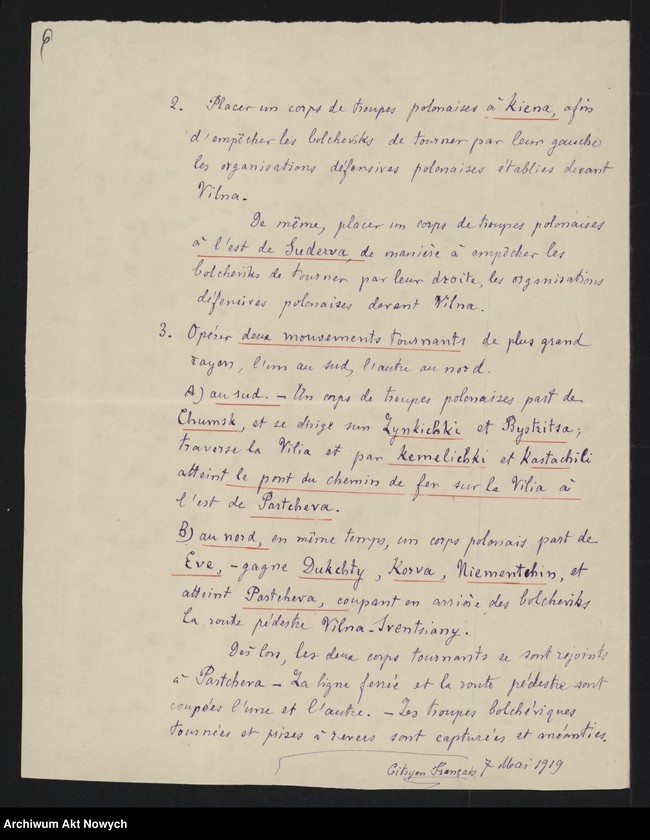 6
2. Placer un corps de troupes polonaises à Kiena, afin
d'empêcher les bolcheviks de tourner par leur gauche
les organisations défensives polonaises établies devant
Vilna.
De même, placer un corps de troupes polonaises
à l'est de Suderva, de manière à empêcher les
bolcheviks de tourner par leur droite, les organisations
défensives polonaises devant Vilna.
3. Opérer deux mouvements tournants de plus grand
rayon, l'un au sud, l'autre au nord.
A) au sud. - Un corps de troupes polonaises part de
Chumsk, et se dirige sur Zynkichki et Bystritsa;
traverse la Vilia et par Kemelichki et Kastachili
atteint le pont du chemin de fer sur la Vilia à
l'est de Partcheva.
B) au nord, en même temps, un corps polonais part de
Eve, - gagne Dukchty, Korva, Niementchin, et
atteint Partcheva, coupant en arrière des bolcheviks
la route pédestre Vilna-Sventsiany.
Dès lors, les deux corps tournants se sont rejoints
à Partcheva - La ligne ferrée et la route pédestre sont
coupées l'une et l'autre. - Les troupes bolchéviques
tournées et prises à revers sont capturées et anéanties.
Citoyen Français 7 Mai 1919
Archiwum Akt Nowych